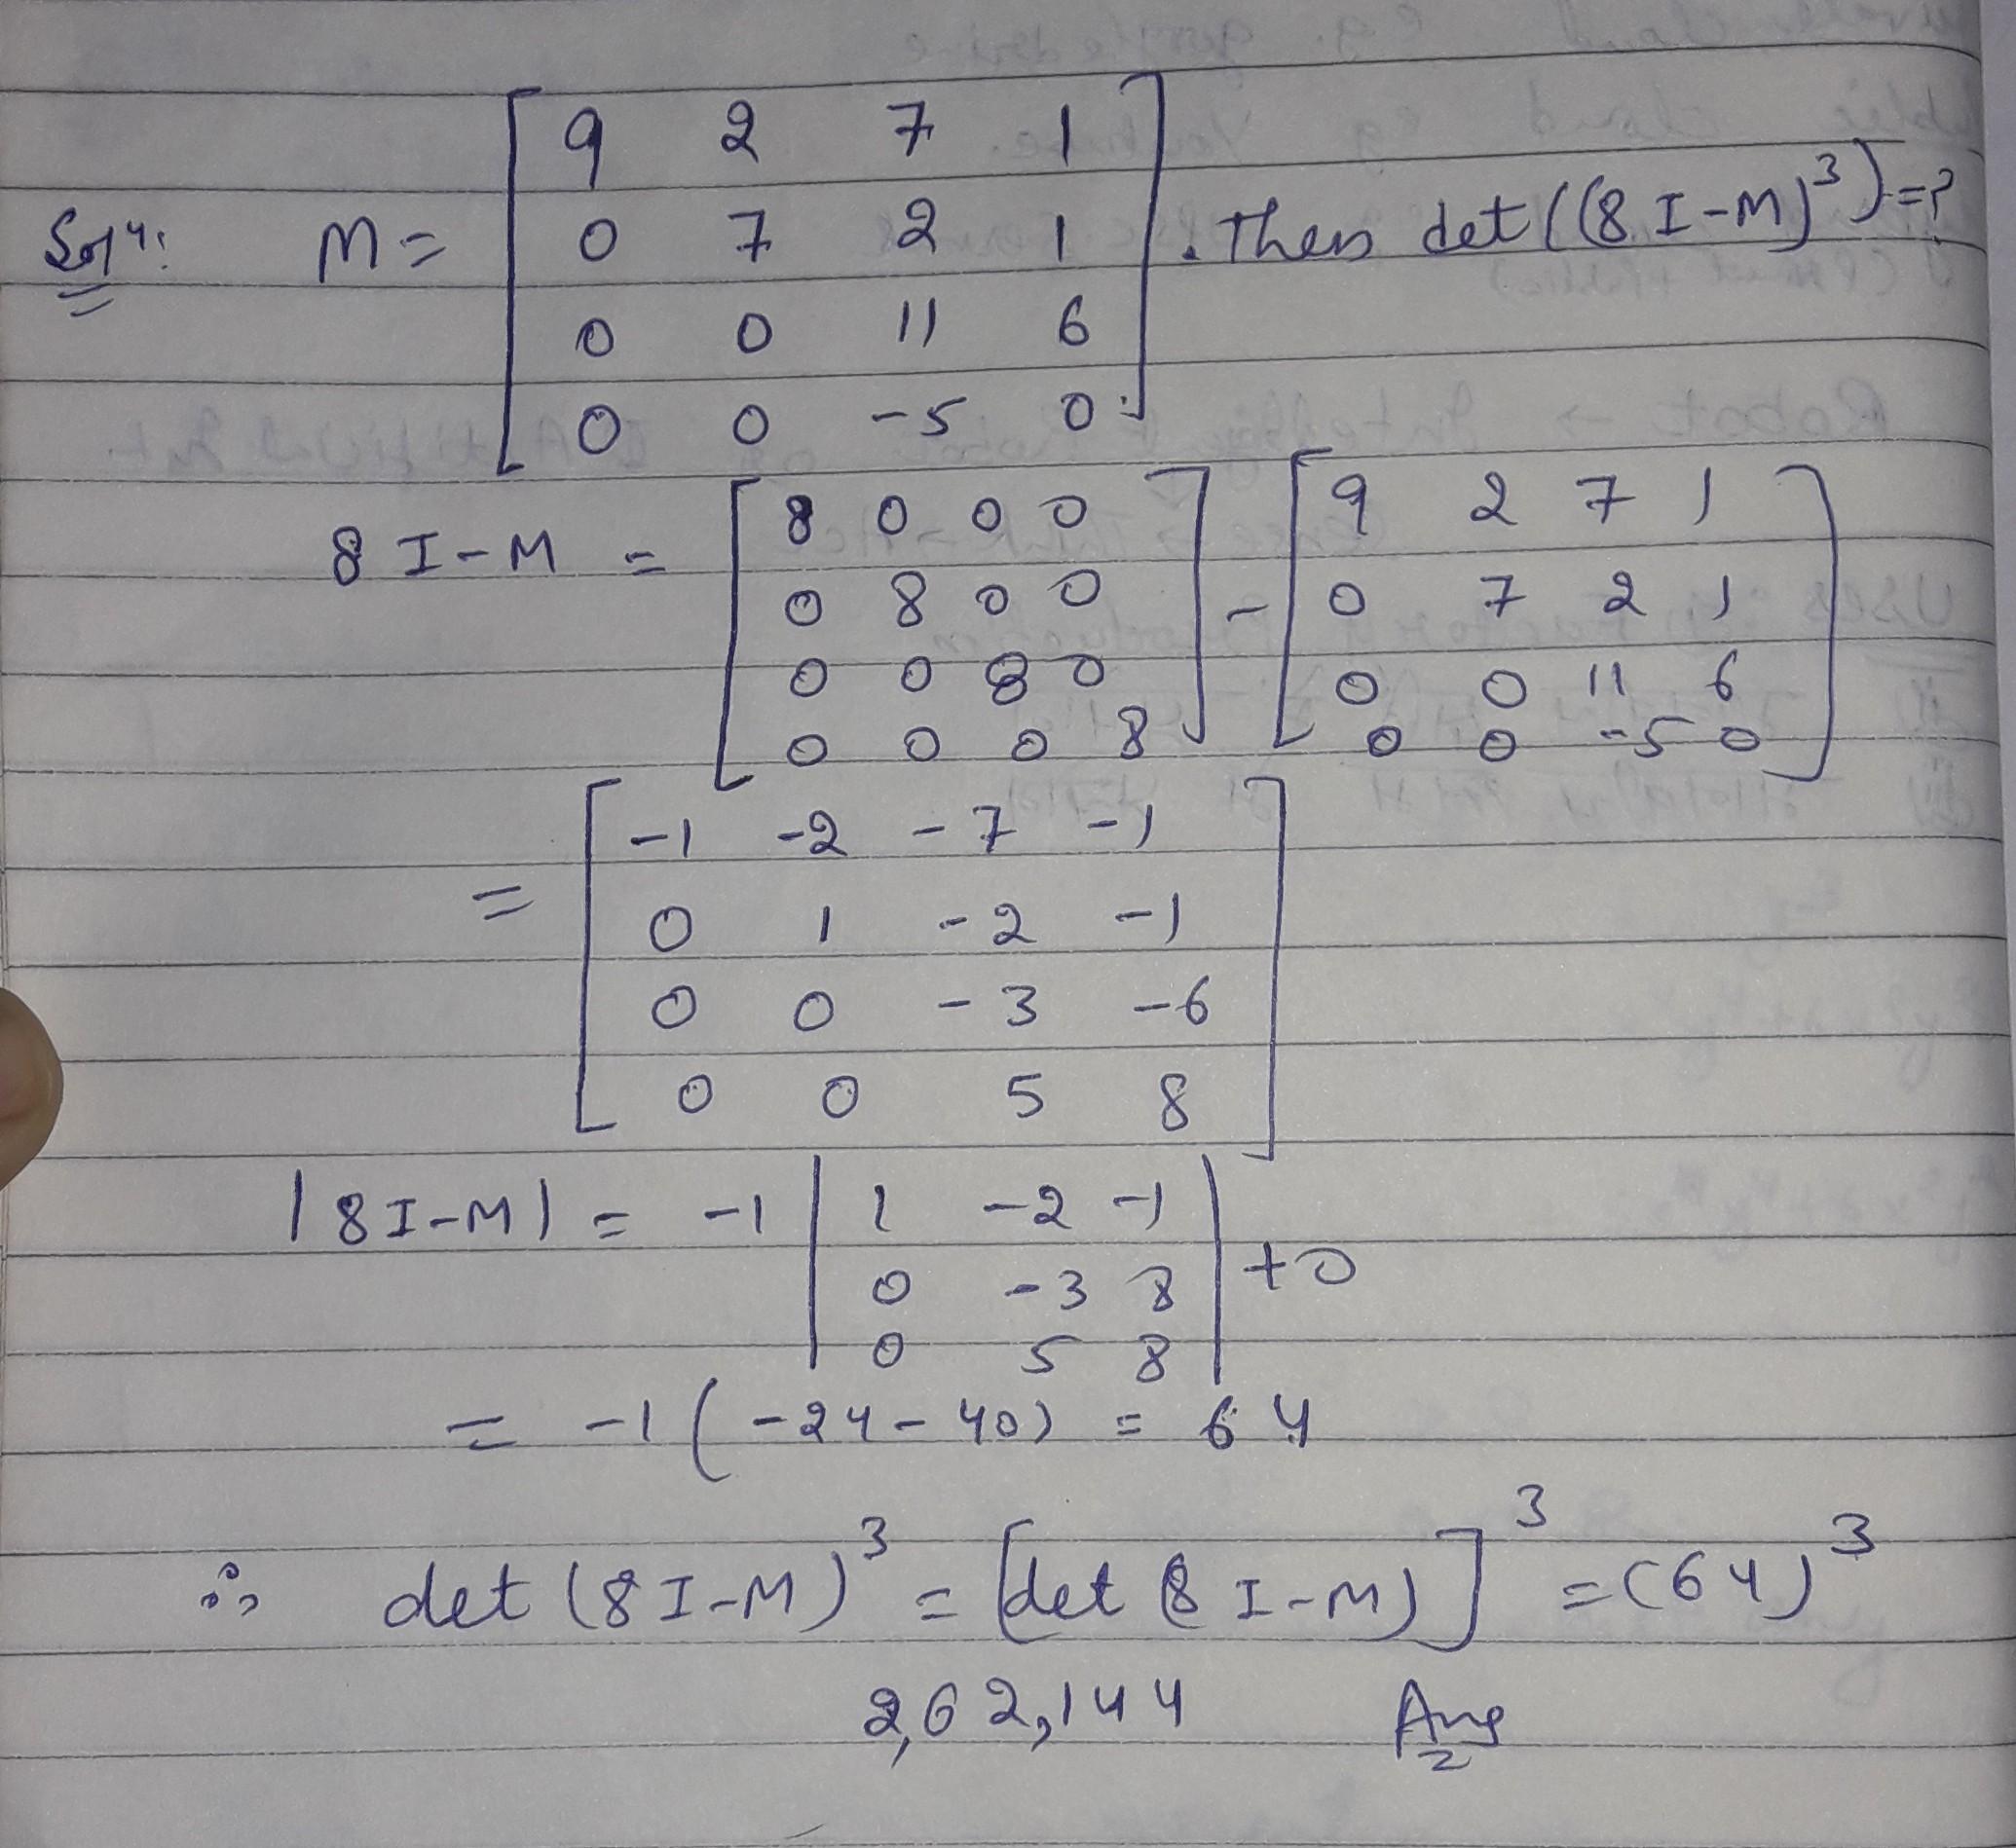 Sol4: M = [ 9 2 7 1
0 7 2 1
0 0 11 6
0 0 -5 0 ] . Then det((8I-M)^3) = ?
8I-M = [ 8 0 0 0
0 8 0 0
0 0 8 0
0 0 0 8 ] - [ 9 2 7 1
0 7 2 1
0 0 11 6
0 0 -5 0 ]
= [ -1 -2 -7 -1
0 1 -2 -1
0 0 -3 -6
0 0 5 8 ]
|8I-M| = -1 | 1 -2 -1
0 -3 8
0 5 8 | +0
= -1(-24-40) = 64
∴ det(8I-M)^3 = [det(8I-M)]^3 = (64)^3
2,62,144 Ans